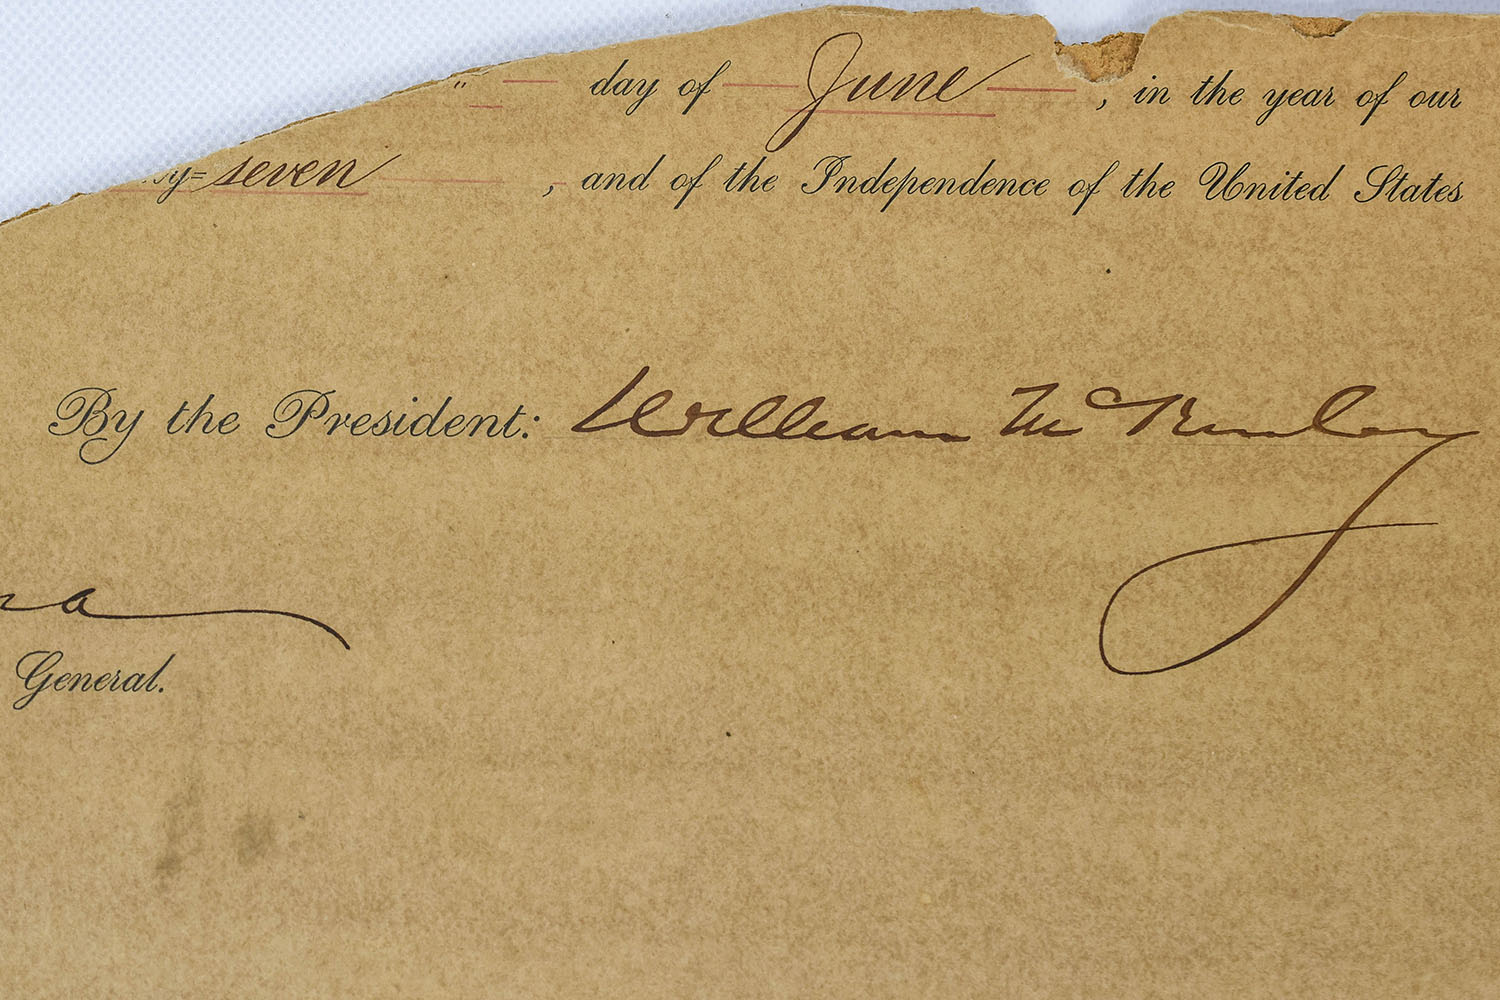 " day of June , in the year of our
seven , and of the Independence of the United States
By the President: William McKinley
General.